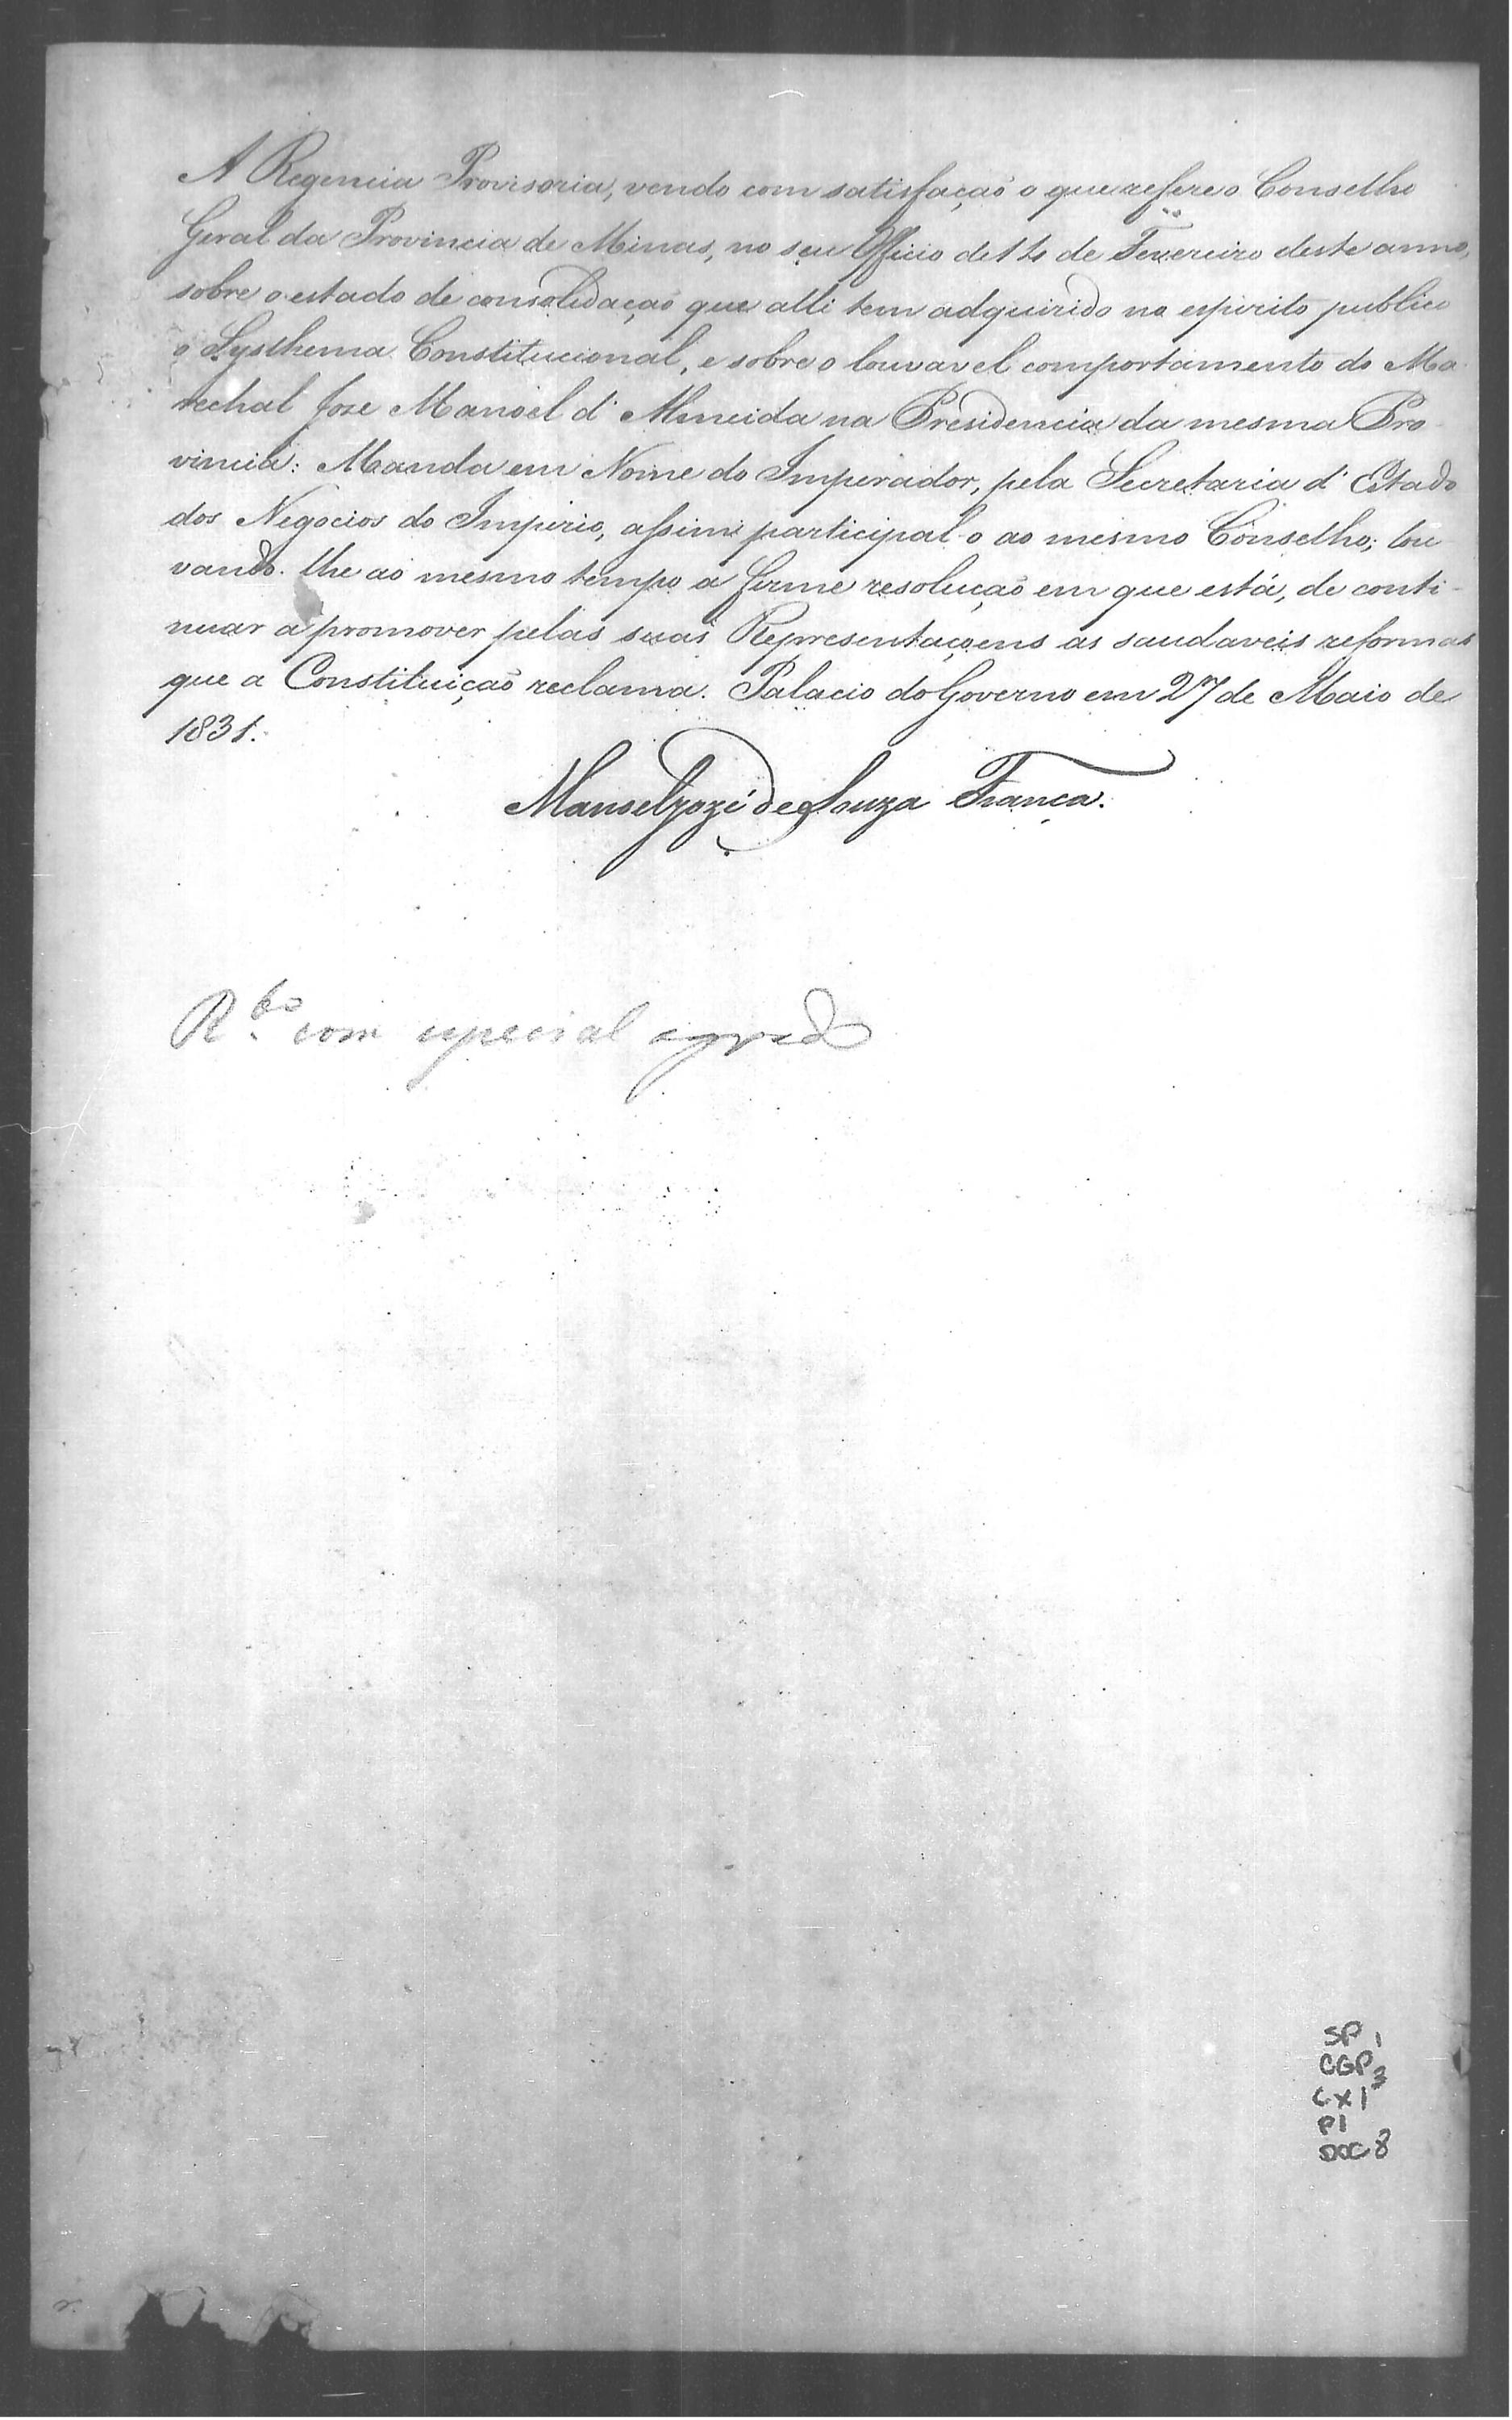 A Regencia Provisoria, vendo com satisfação o que refere o Conselho
Geral da Provincia de Minas, no seu Officio de 14 de Fevereiro deste anno,
sobre o estado de consolidação que alli tem adquirido no espirito publico
o Systhema Constitucional, e sobre o louvavel comportamento do Ma-
rechal Joze Manoel d'Almeida na Presidencia da mesma Pro-
vincia: Manda em Nome do Imperador, pela Secretaria d'Estado
dos Negocios do Imperio, assim participal-o ao mesmo Conselho; lou-
vando-lhe ao mesmo tempo a firme resolução em que está, de conti-
nuar a promover pelas suas Representaçoens as saudaveis reformas
que a Constituição reclama. Palacio do Governo em 27 de Maio de
1831.
Manoel Jozé de Souza França.
R.bo com especial agrado
SP 1
CGP 3
CX 1
P1
DOC 8